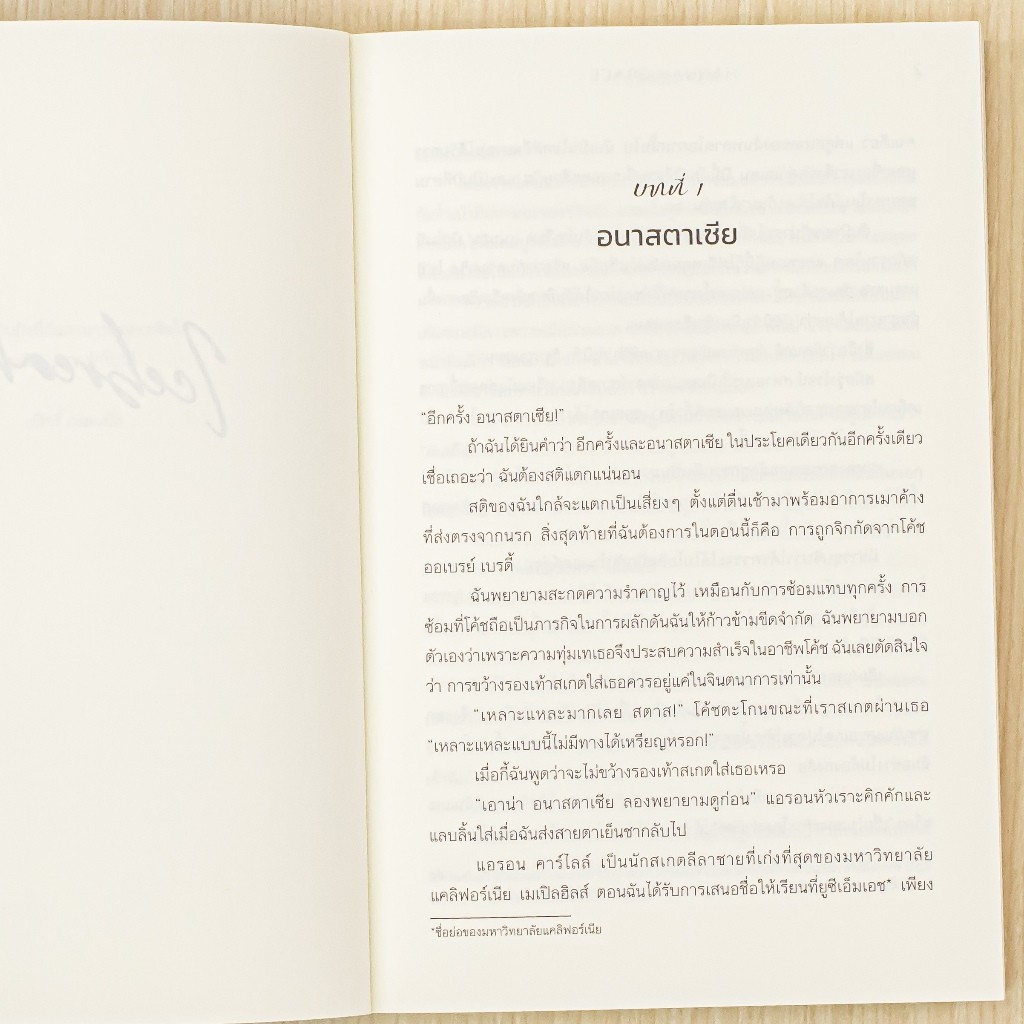 บทที่ 1
อนาสตาเซีย
“อีกครั้ง อนาสตาเซีย!”
ถ้าฉันได้ยินคำว่า อีกครั้งและอนาสตาเซีย ในประโยคเดียวกันอีกครั้งเดียว
เชื่อเถอะว่า ฉันต้องสติแตกแน่นอน
สติของฉันใกล้จะแตกเป็นเสี่ยงๆ ตั้งแต่ตื่นเช้ามาพร้อมอาการเมาค้าง
ที่ส่งตรงจากนรก สิ่งสุดท้ายที่ฉันต้องการในตอนนี้ก็คือ การถูกจิกกัดจากโค้ช
ออเบรย์ เบรดี้
ฉันพยายามสะกดความรำคาญไว้ เหมือนกับการซ้อมแทบทุกครั้ง การ
ซ้อมที่โค้ชถือเป็นภารกิจในการผลักดันฉันให้ก้าวข้ามขีดจำกัด ฉันพยายามบอก
ตัวเองว่าเพราะความทุ่มเทเธอจึงประสบความสำเร็จในอาชีพโค้ช ฉันเลยตัดสินใจ
ว่า การขว้างรองเท้าสเกตใส่เธอควรอยู่แค่ในจินตนาการเท่านั้น
“เหลาะแหละมากเลย สตาส!” โค้ชตะโกนขณะที่เราสเกตผ่านเธอ
“เหลาะแหละแบบนี้ไม่มีทางได้เหรียญหรอก!”
เมื่อกี้ฉันพูดว่าจะไม่ขว้างรองเท้าสเกตใส่เธอเหรอ
“เอาน่า อนาสตาเซีย ลองพยายามดูก่อน” แอรอนหัวเราะคิกคักและ
แลบลิ้นใส่เมื่อฉันส่งสายตาเย็นชากลับไป
แอรอน คาร์ไลล์ เป็นนักสเกตลีลาชายที่เก่งที่สุดของมหาวิทยาลัย
แคลิฟอร์เนีย เมเปิลฮิลส์ ตอนฉันได้รับการเสนอชื่อให้เรียนที่ยูซีเอ็มเอช* เพียง
*ชื่อย่อของมหาวิทยาลัยแคลิฟอร์เนีย